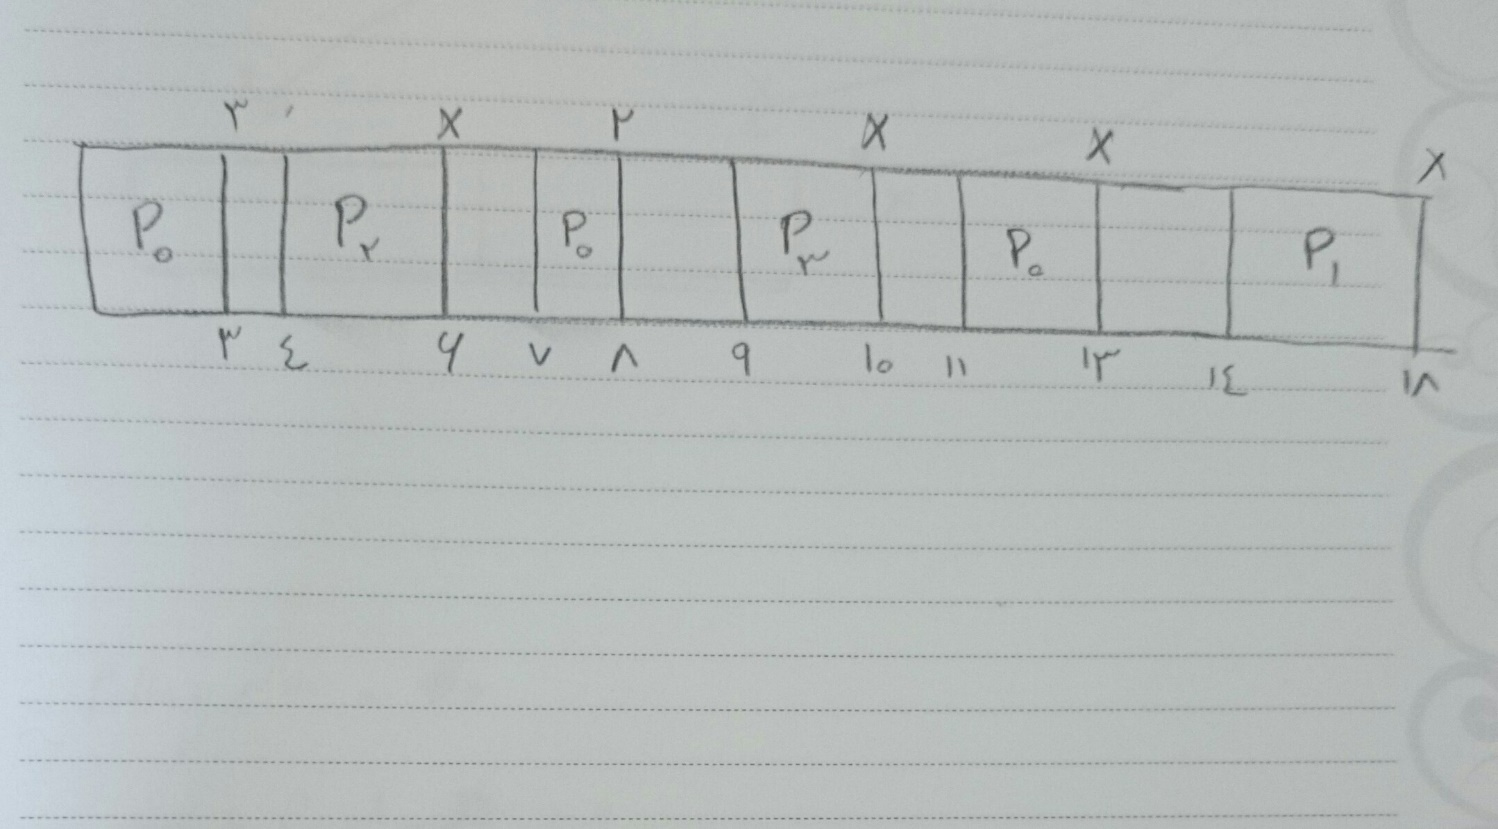 ۳ X ۲ X X X
P۰ P۲ P۰ P۳ P۰ P۱
۳ ٤ ۶ ۷ ۸ ۹ ۱۰ ۱۱ ۱۳ ۱٤ ۱۸